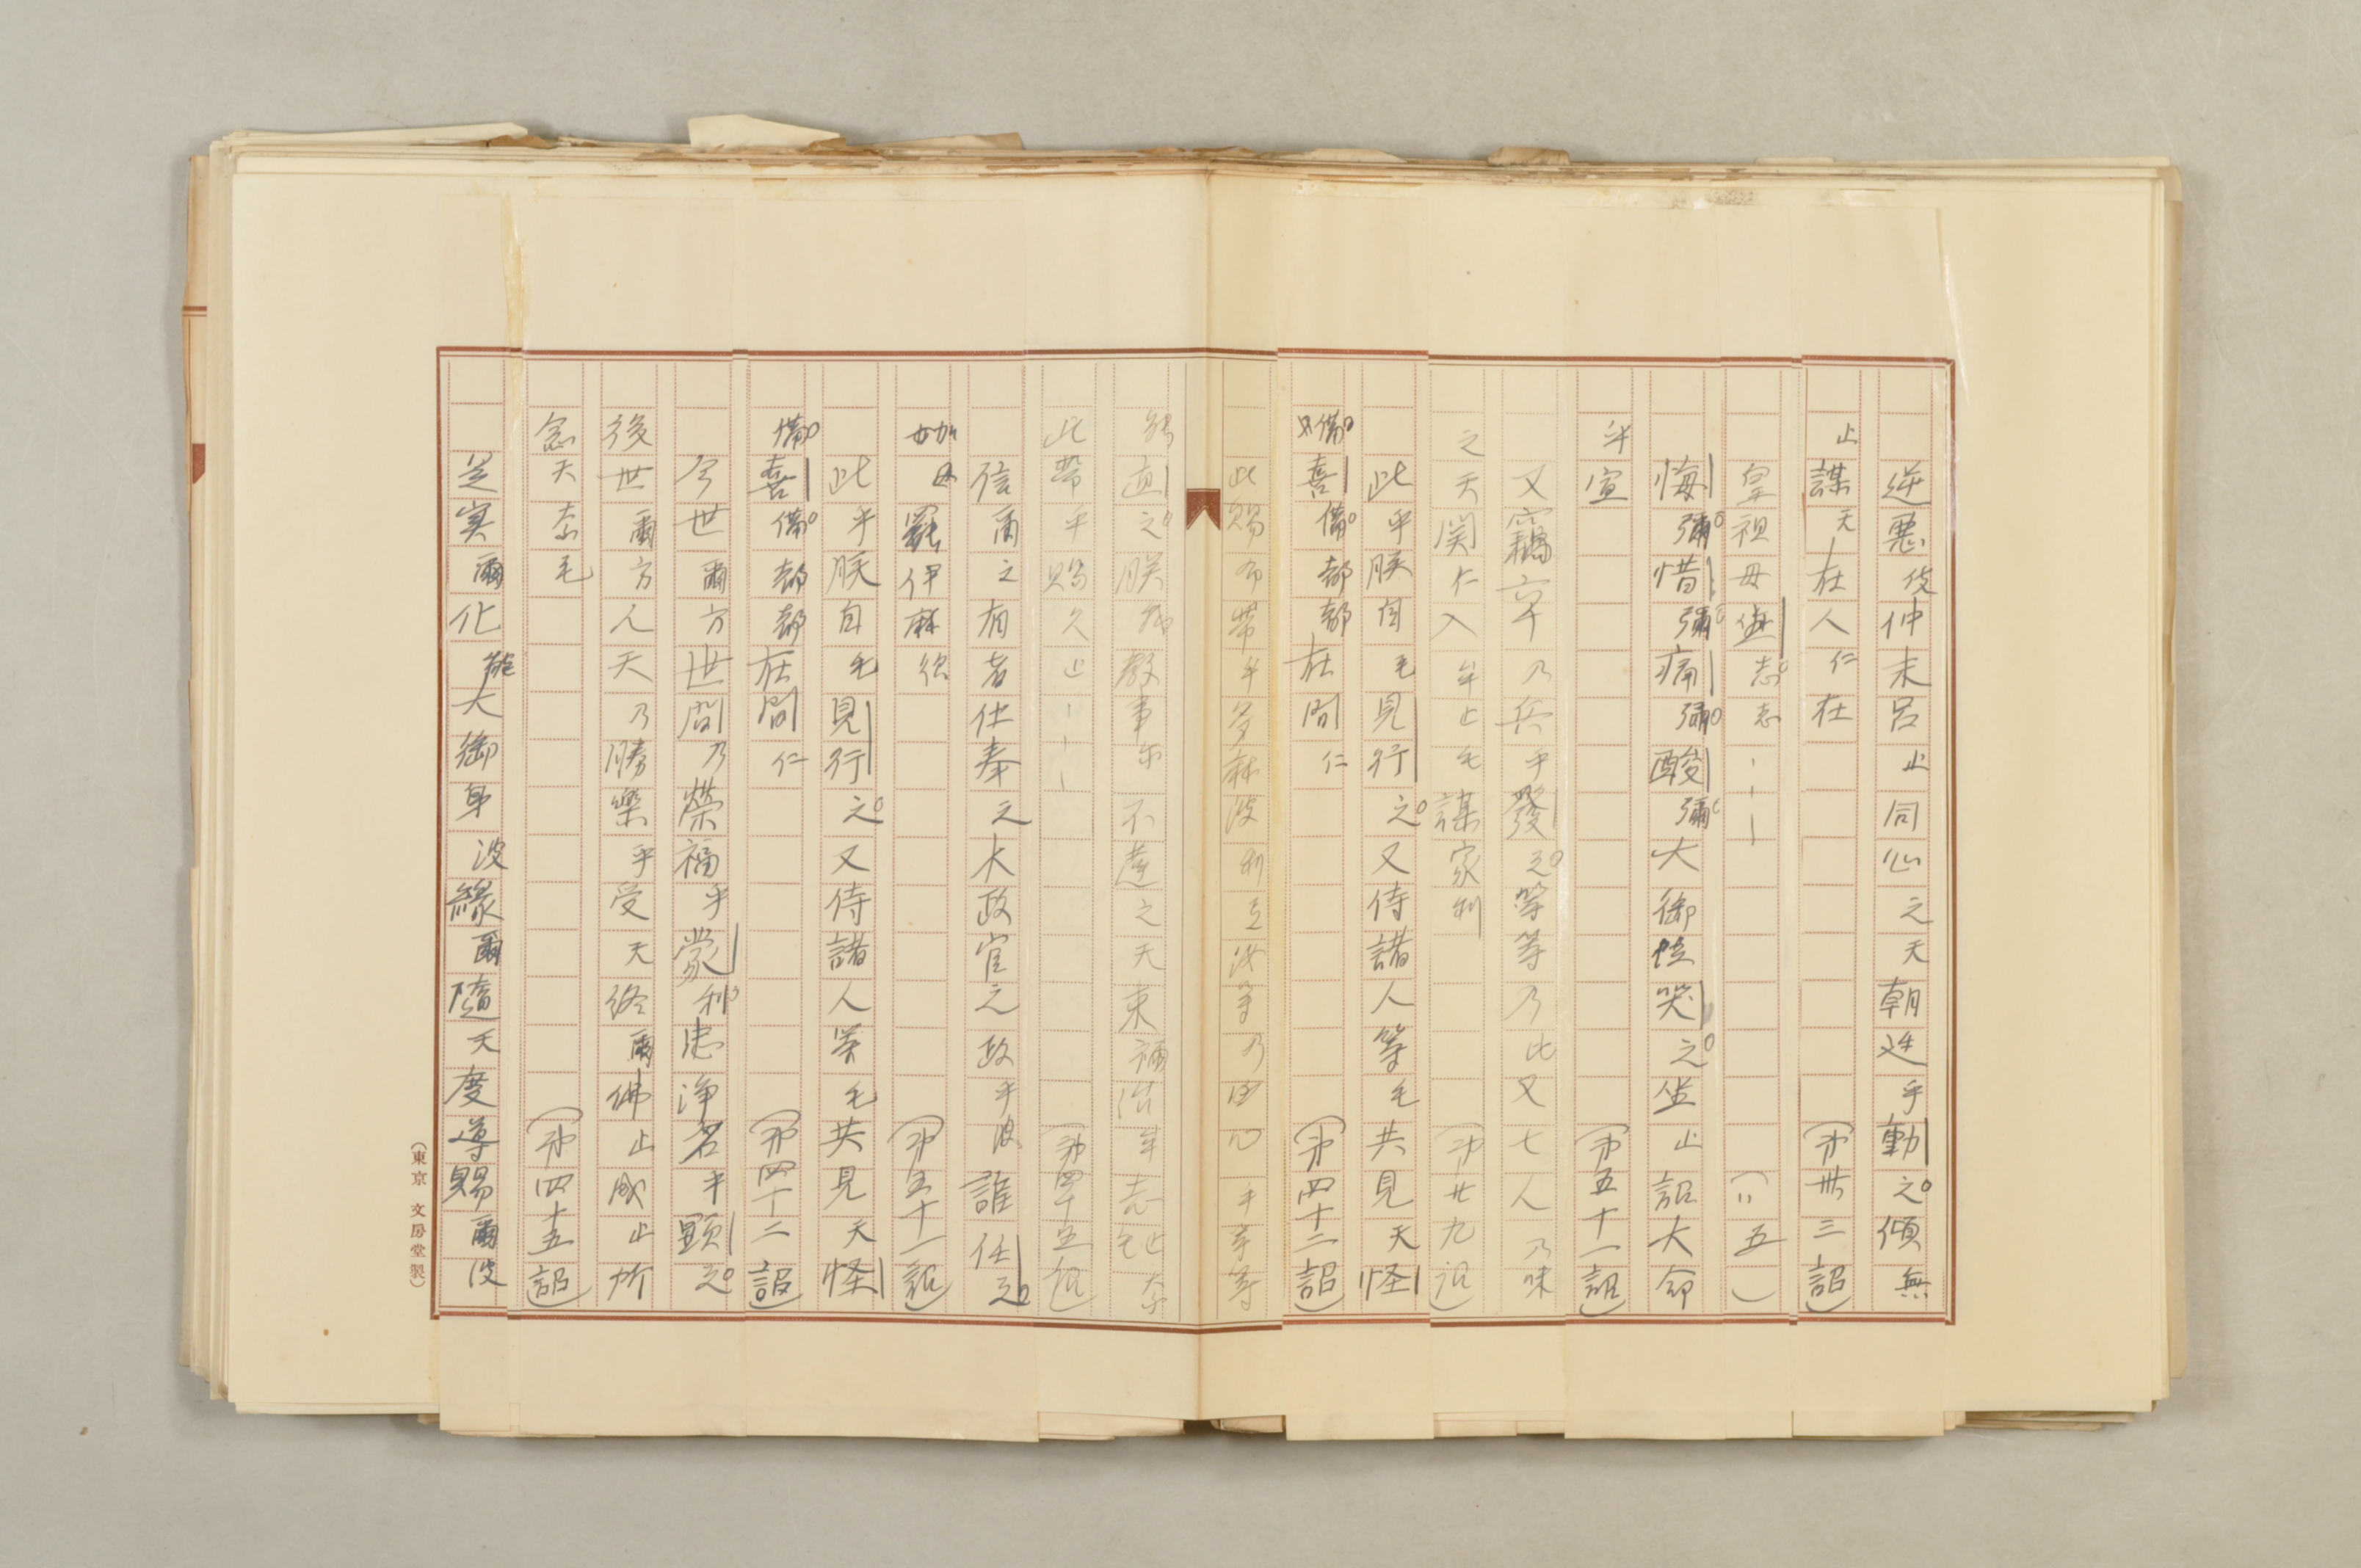 逆悪伎仲末呂止同心之天朝廷乎動之傾無
止謀天在人仁在（卅三詔）
皇祖母　志志（〃五）
悔彌惜彌痛彌酸彌大御　哭之坐止詔大命
乎宣（第五十一詔）
又竊　乃兵乎發之等等乃比又七人乃味
之天関仁入牟止毛謀家利（第廿九詔）
此乎朕自毛見行之又侍諸人等毛共見天怪
備喜備都都在間仁（第四十二詔）
此賜布帯乎多麻波利互汝等乃　心乎等等
　直之朕　教事尓不違之天束祢治牟志止奈
此帯乎賜久止（第四十五詔）
信爾之有者仕奉之太政官之政乎波誰任之
加母罷伊麻須（第五十一詔）
此乎朕自毛見行之又侍諸人等毛共見天怪
備喜備都都在間仁（第四十二詔）
今世爾方世間乃榮福乎蒙利忠浄名乎顕之
後世爾方人天乃勝樂乎受天終爾佛止成止所
念天奈毛（第四十五詔）
是実爾化能大御身波縁爾隨天度導賜爾波
（東京 文房堂製）